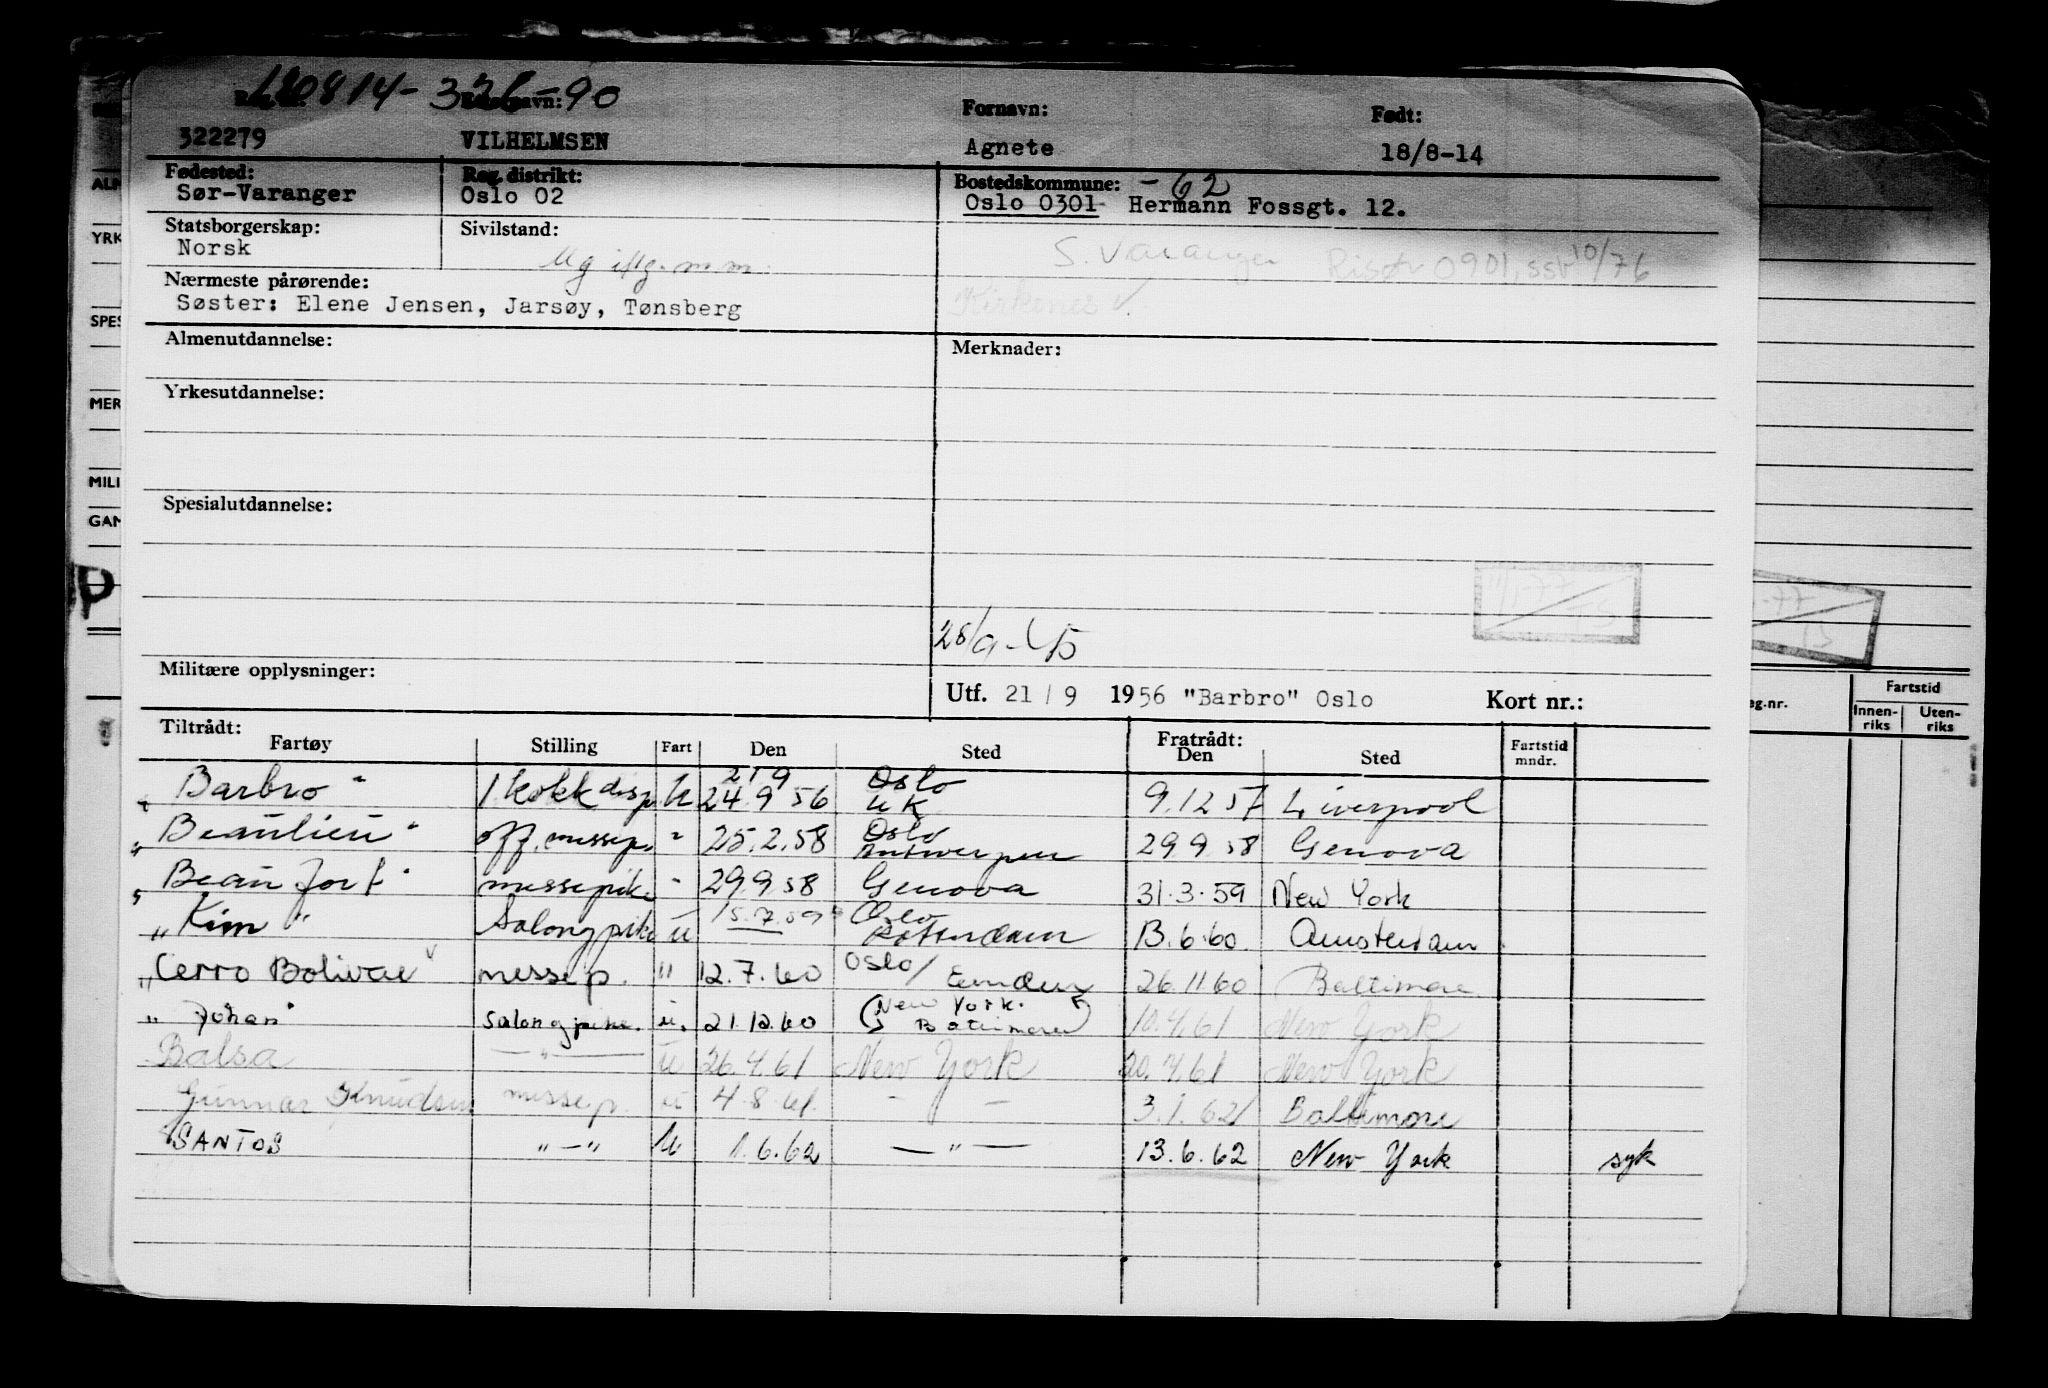 180814-
-90
322279 VILHELMSEN
Fornavn:
Agnete
Født:
18/8-14
Fødested:
Sør-Varanger
Reg. distrikt:
Oslo 02
Bostedskommune: -62
Oslo 0301- Hermann Fossgt. 12.
Statsborgerskap:
Norsk
Sivilstand:
Ug
S. Varanger
Risør 0901, 10/76
Nærmeste pårørende:
Søster: Elene Jensen, Jarsøy, Tønsberg
Kirkenes
Almenutdannelse:
Merknader:
Yrkesutdannelse:
Spesialutdannelse:
11/1-77
TS
Militære opplysninger:
Utf. 21/9 1956 "Barbro" Oslo Kort nr.:
Tiltrådt: Fratrådt:
Fartøy Stilling Fart Den Sted Den Sted Fartstid mndr.
21 9 Oslo
Barbro 1 kokk disp U 24.9 56 UK 9.12 57 Liverpool
"Beaulieu" off. messep. " 25.2.58 Oslo Antwerpen 29 9 58 Genova
"Beaufort" messepike " 29.9 58 Genova 31.3.59 New York
"Kim" Salongpike u 15.12.59 Oslo Rotterdam 13.6.60 Amsterdam
"Cerro Bolivar messep. " 12.7.60 Oslo/ Emden 26.11 60 Baltimore
" Johan" Salongpike. u. 21.12.60 (New York. Baltimore) 10.4.61 New York
Balsa — " — u 26.4.61 New York 20.7.61 New York
Gunnar Knudsen messep. u 4.8.61 — — 3.1.62 Baltimore
SANTOS "—" U 1.6.62 — " — 13.6.62 New York syk
ALM
YRK
SPES
MER
MILI
GAN
P
-77
TS
eg.nr.
Fartstid
Innen-riks
Uten-riks